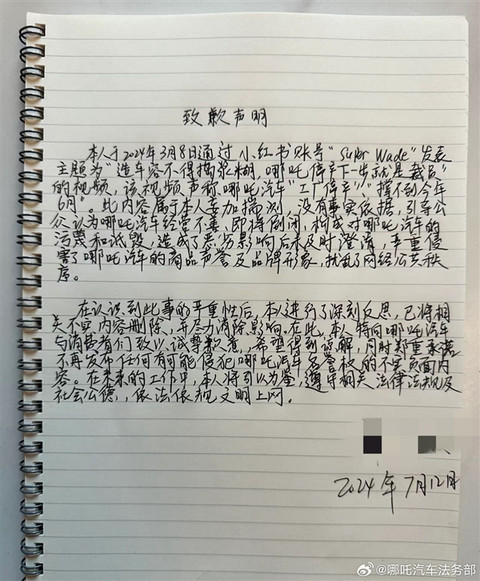 致歉声明
本人于2024年3月8日通过小红书账号"Super Wade"发表
主题为"造车容不得搞浆糊，哪吒停产下一步就是裁员"
的视频，该视频声称哪吒汽车"工厂停产""撑不到今年
6月"。此内容属于本人妄加揣测，没有事实依据，引导公
众认为哪吒汽车经营不善，即将倒闭，构成对哪吒汽车的
污蔑和诋毁，造成了恶劣影响后未及时澄清，严重侵
害了哪吒汽车的商品声誉及品牌形象，扰乱了网络公共秩
序。
在认识到此事的严重性后，本人进行了深刻反思，已将相
关不实内容删除，并尽力消除影响。在此，本人特向哪吒汽车
与消费者们致以诚挚歉意，希望得到谅解，同时郑重承诺
不再发布任何有可能侵犯哪吒汽车名誉权的不实负面内
容。在未来的工作中，本人将引以为鉴，遵守相关法律法规及
社会公德，依法依规文明上网。
2024年7月12日
@哪吒汽车法务部